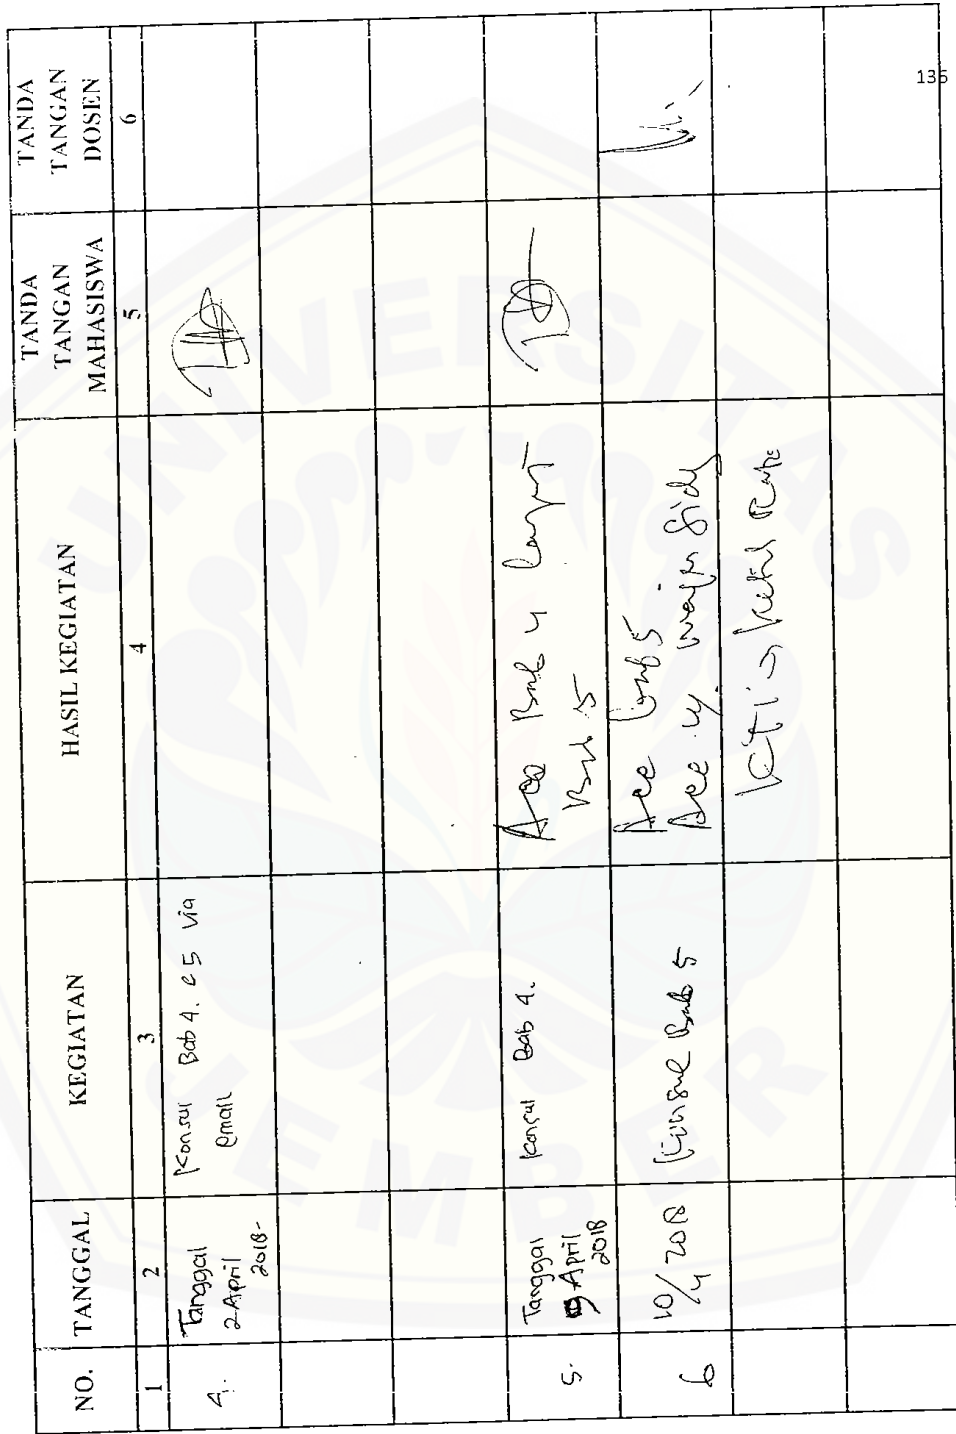 135
NO. TANGGAL KEGIATAN HASIL KEGIATAN TANDA TANGAN MAHASISWA TANDA TANGAN DOSEN
1 2 3 4 5 6
4. Tanggal 2 April 2018- Konsul Bab 4. e 5 via email
5. Tanggal 9 April 2018 Konsul Bab 4. Acc Bab 4 lanjut Bab 5
6 10/4 2018 Konsul Bab 5 Acc bab 5
Acc maju sidg
KTI
UNIVERSITAS
JEMBER